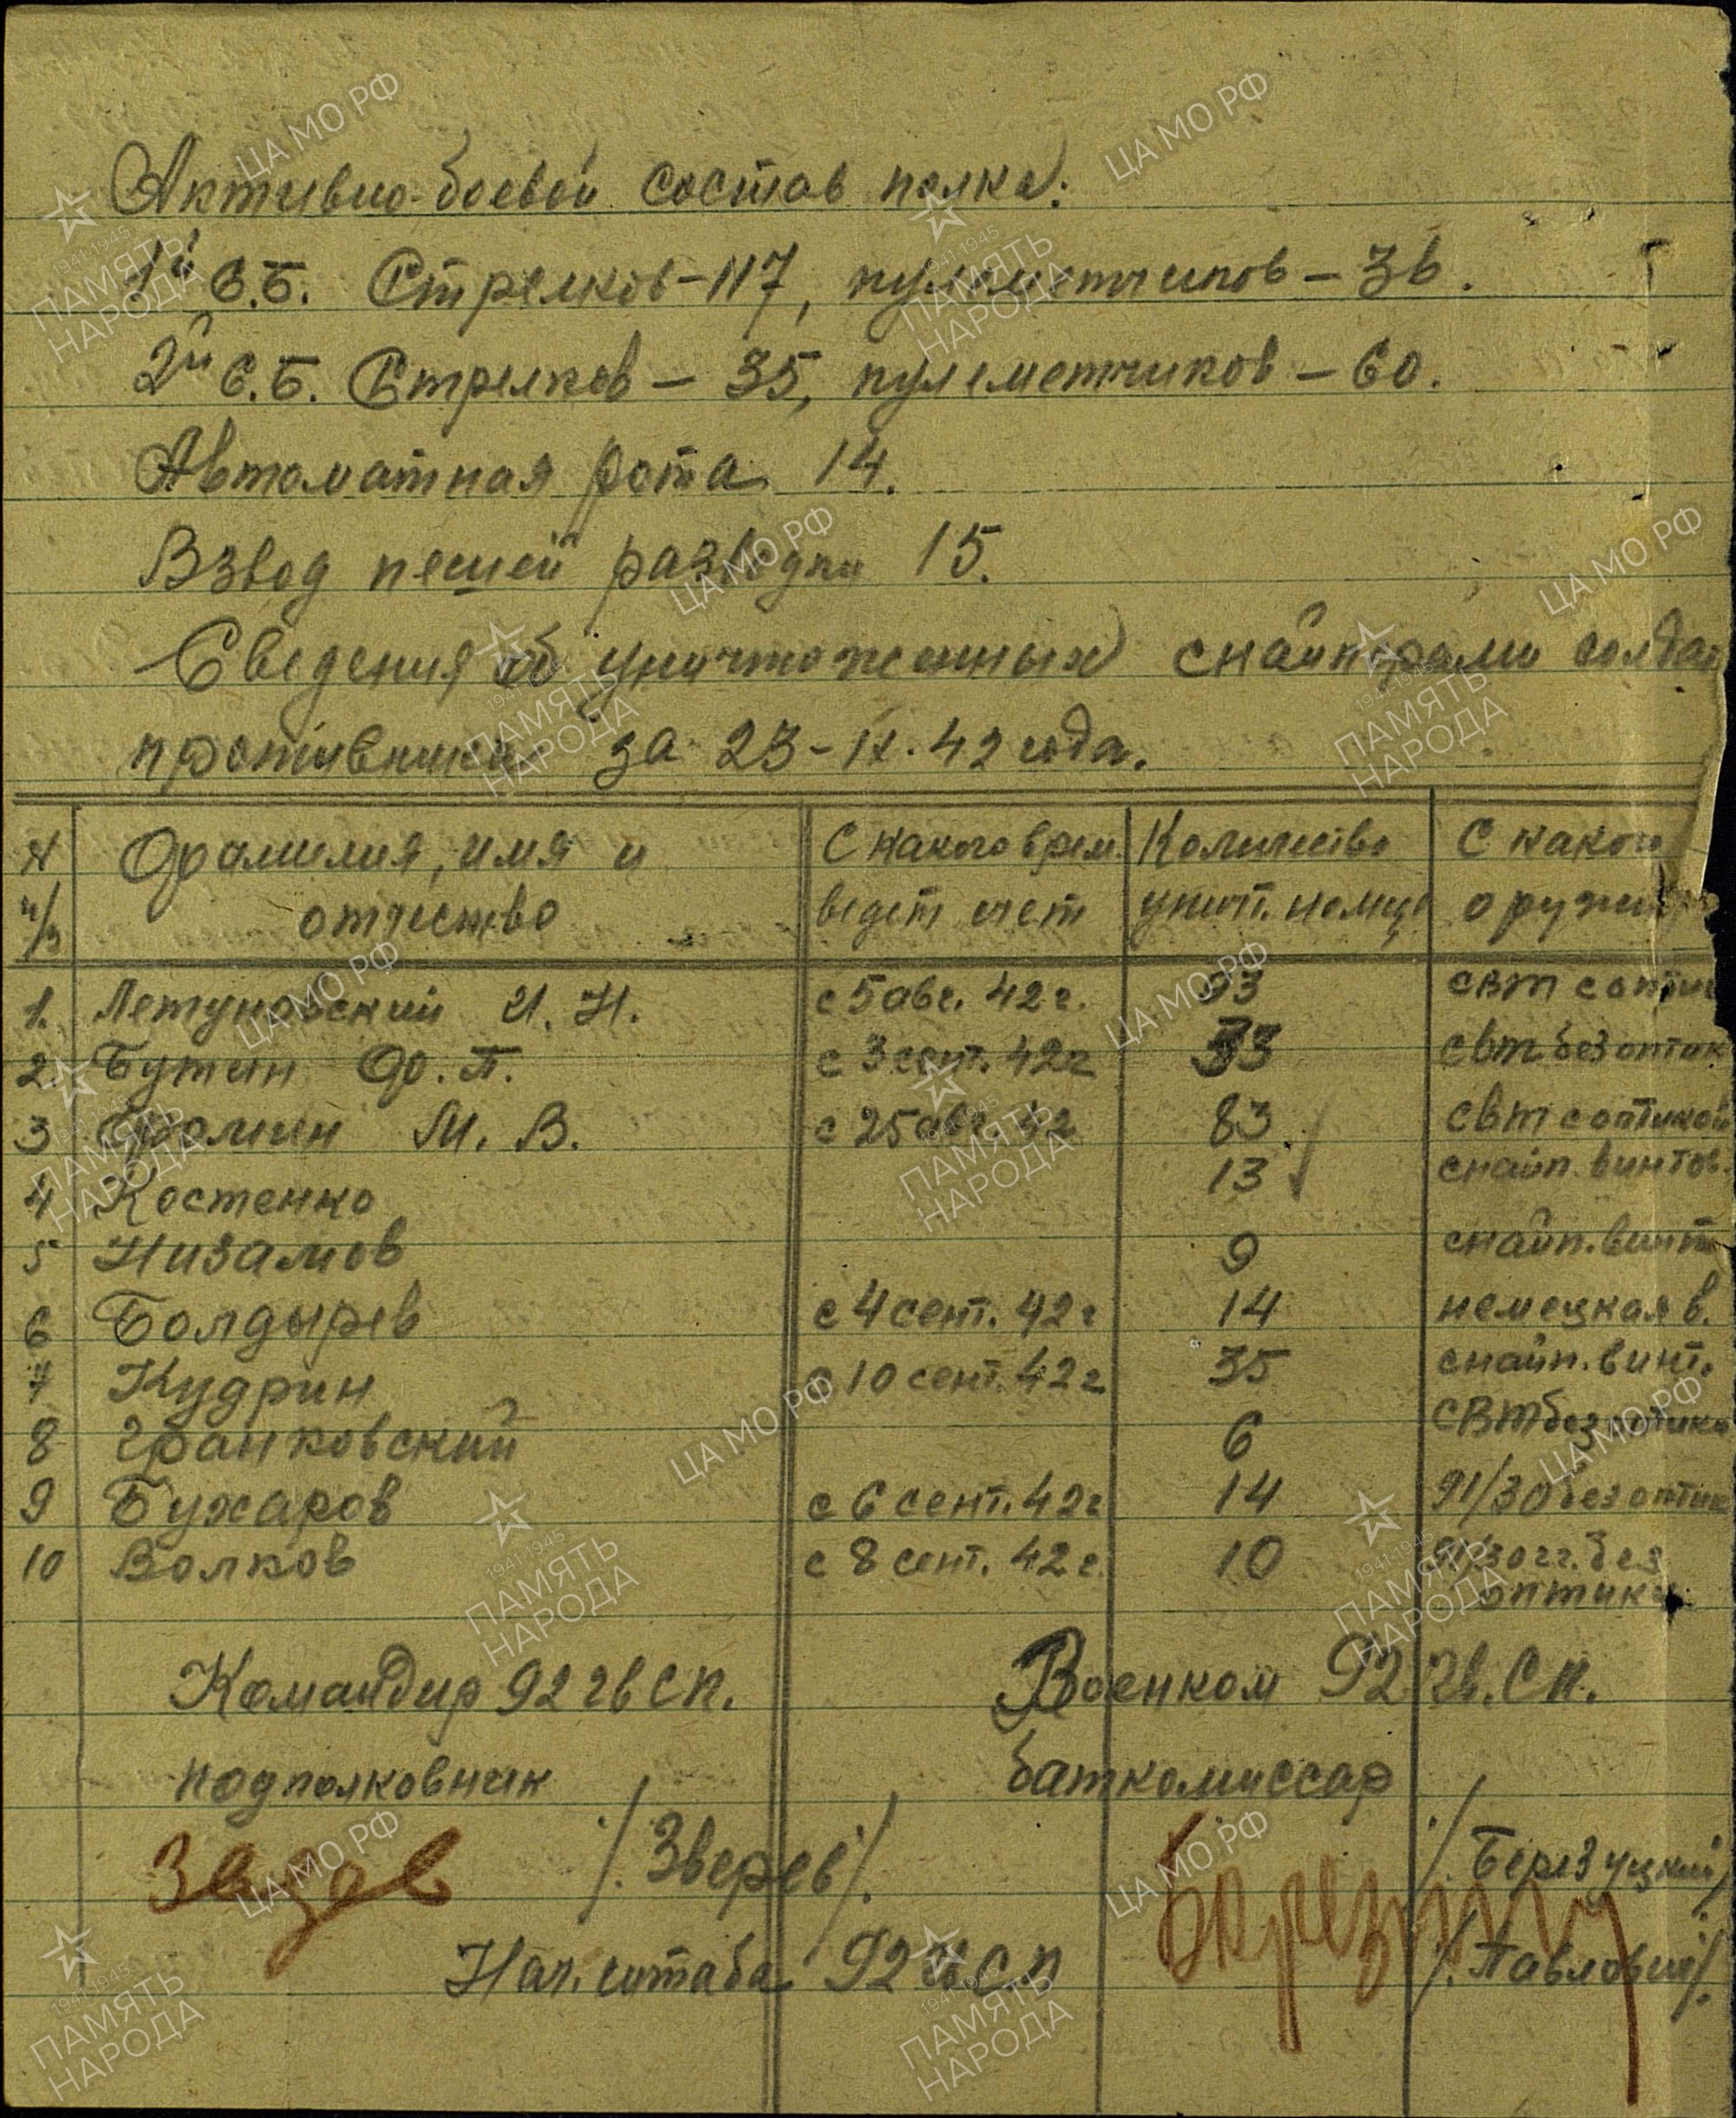 Активно-боевой состав полка:
1й С.Б. Стрелков-117, пулеметчиков - 36.
2й С.Б. Стрелков - 35, пулеметчиков - 60.
Автоматная рота 14.
Взвод пешей разведки 15.
Сведения об уничтоженных снайперами солдат
противника за 23-IX.42 года.
N п/п Фрамилия, имя и отчество С какого врем. ведет счет Количество унич. немц. С какого оружия
1. Летуновский И. Н. с 5 авг. 42 г. 93 свт с оптик
2. Бутин Ф. П. с 3 сент. 42 г 33 свт без оптик
3 Фролмин М. В. с 25 авг. 42 83 свт с оптикой
4 Костенко 13 снайп. винтов.
5 Низамов 9 снайп. винт
6 Болдырев с 4 сент. 42 г 14 немецкая в.
7 Кудрин с 10 сент. 42 г 35 снайп. винт.
8 Гранковский 6 СВТ без оптики
9 Бухаров с 6 сент. 42 г 14 91/30 без оптик
10 Волков с 8 сент. 42 г. 10 91/30 гг. без
оптики
Командир 92 гв СП. Военком 92 гв. СП.
подполковник баткомиссар
/Зверев/. /Березуцкий/
Нач. штаба 92 гв СП /Павловский/.
ЦА МО РФ
1941-1945
ПАМЯТЬ
НАРОДА